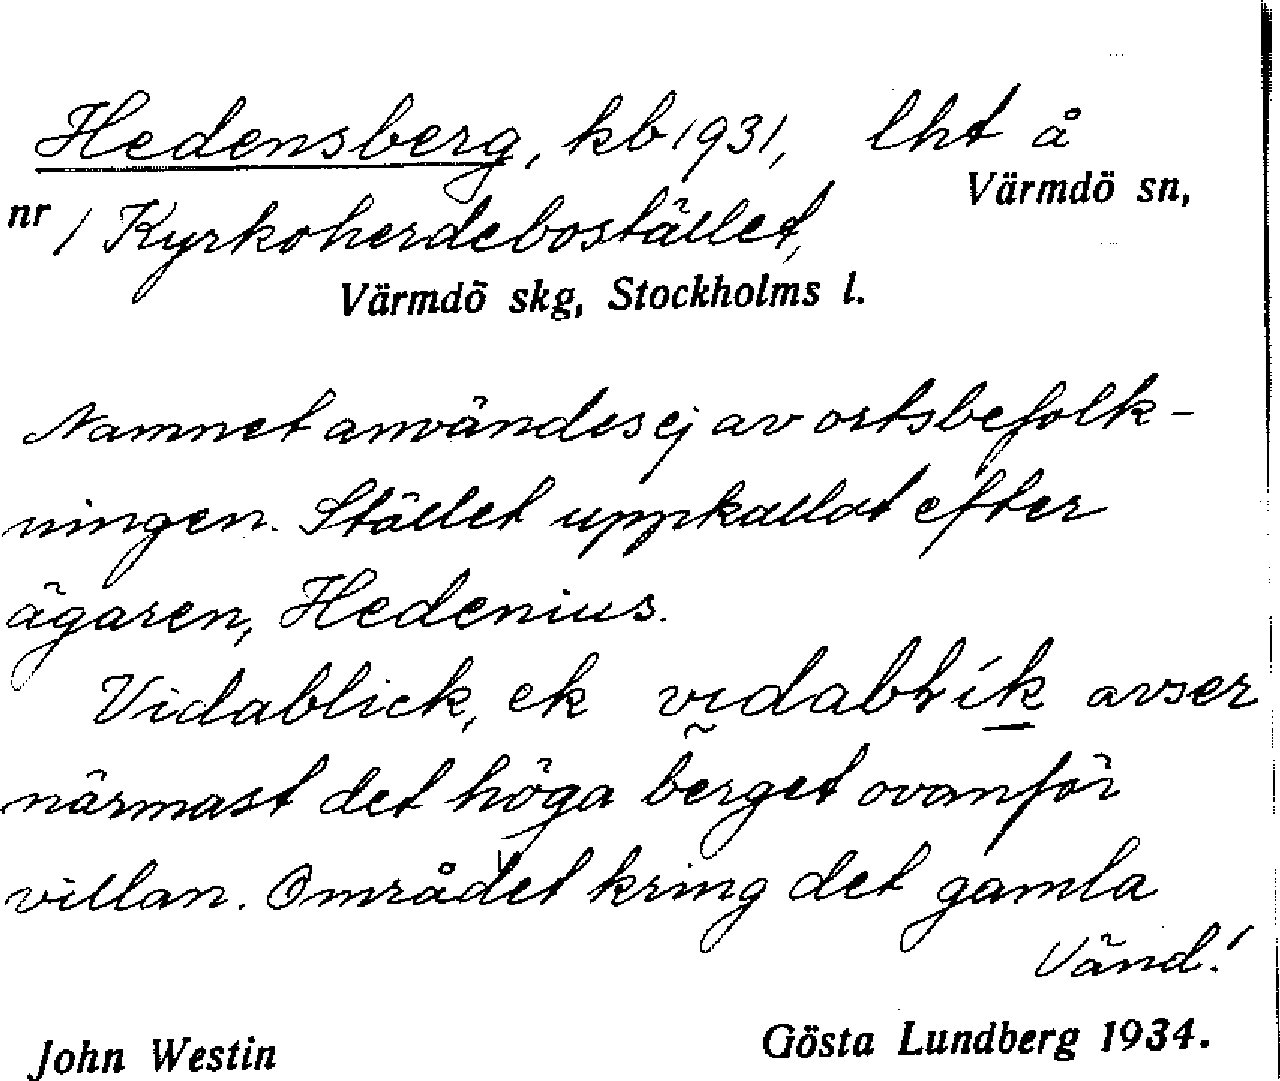 Hedensberg, kb 1931, lht å
Värmdö sn,
nr 1 Kyrkoherdebostället,
Värmdö skg, Stockholms l.
Namnet användes ej av ortsbefolk-
ningen. Stället uppkallat efter
ägaren, Hedenius.
Vidablick, ek vidablik avser
närmast det höga berget ovanför
villan. Området kring det gamla
Vänd!
John Westin
Gösta Lundberg 1934.